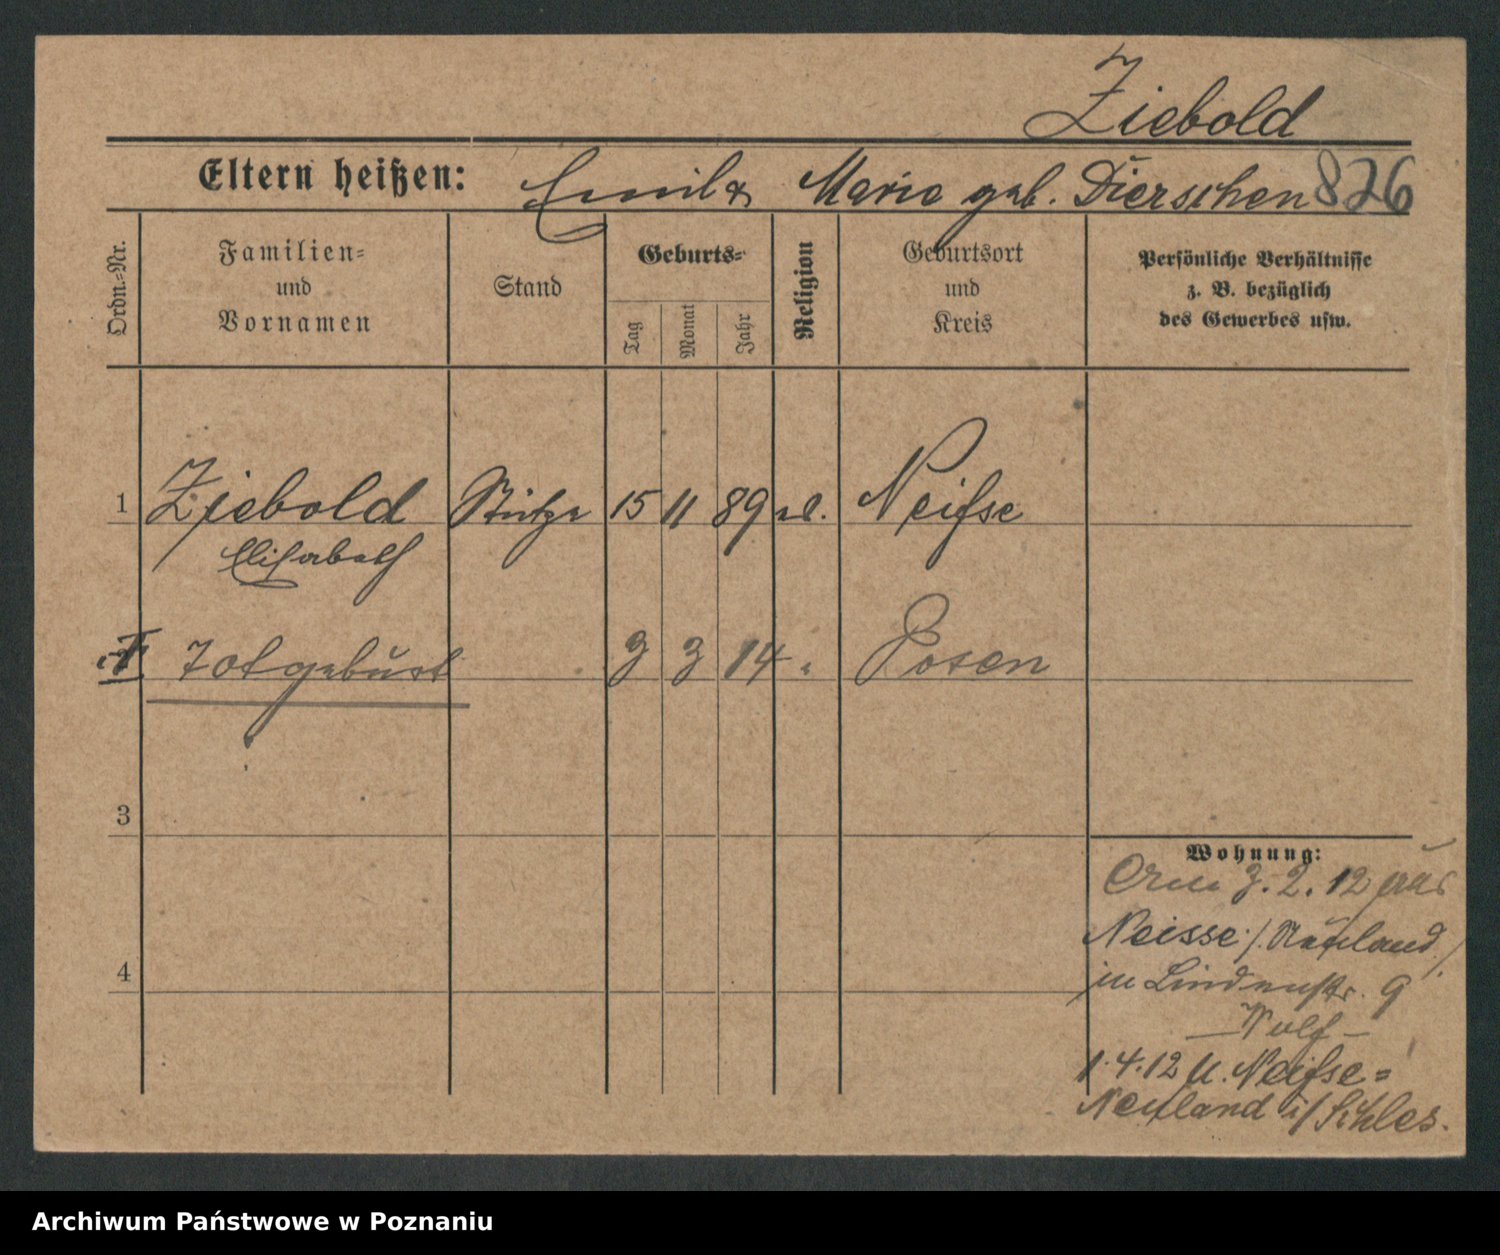 Ziebold
Eltern heißen: Emil & Marie geb. Dierschen 826
Ordn.-Nr.
Familien- und Vornamen
Stand
Geburts-
Tag Monat Jahr
Religion
Geburtsort und Kreis
Persönliche Verhältnisse
z. B. bezüglich
des Gewerbes usw.
1 Ziebold Stütze 15 11 89 Neisse
Elisabeth
Totgeburt 3 3 14 Posen
3
Wohnung:
3. 2. 12 aus
Neisse /. Neuland /.
in Lindenstr. 9
— Wolf —
4
1.4.12 n. Neisse=
Neuland i/ Schles.
Archiwum Państwowe w Poznaniu